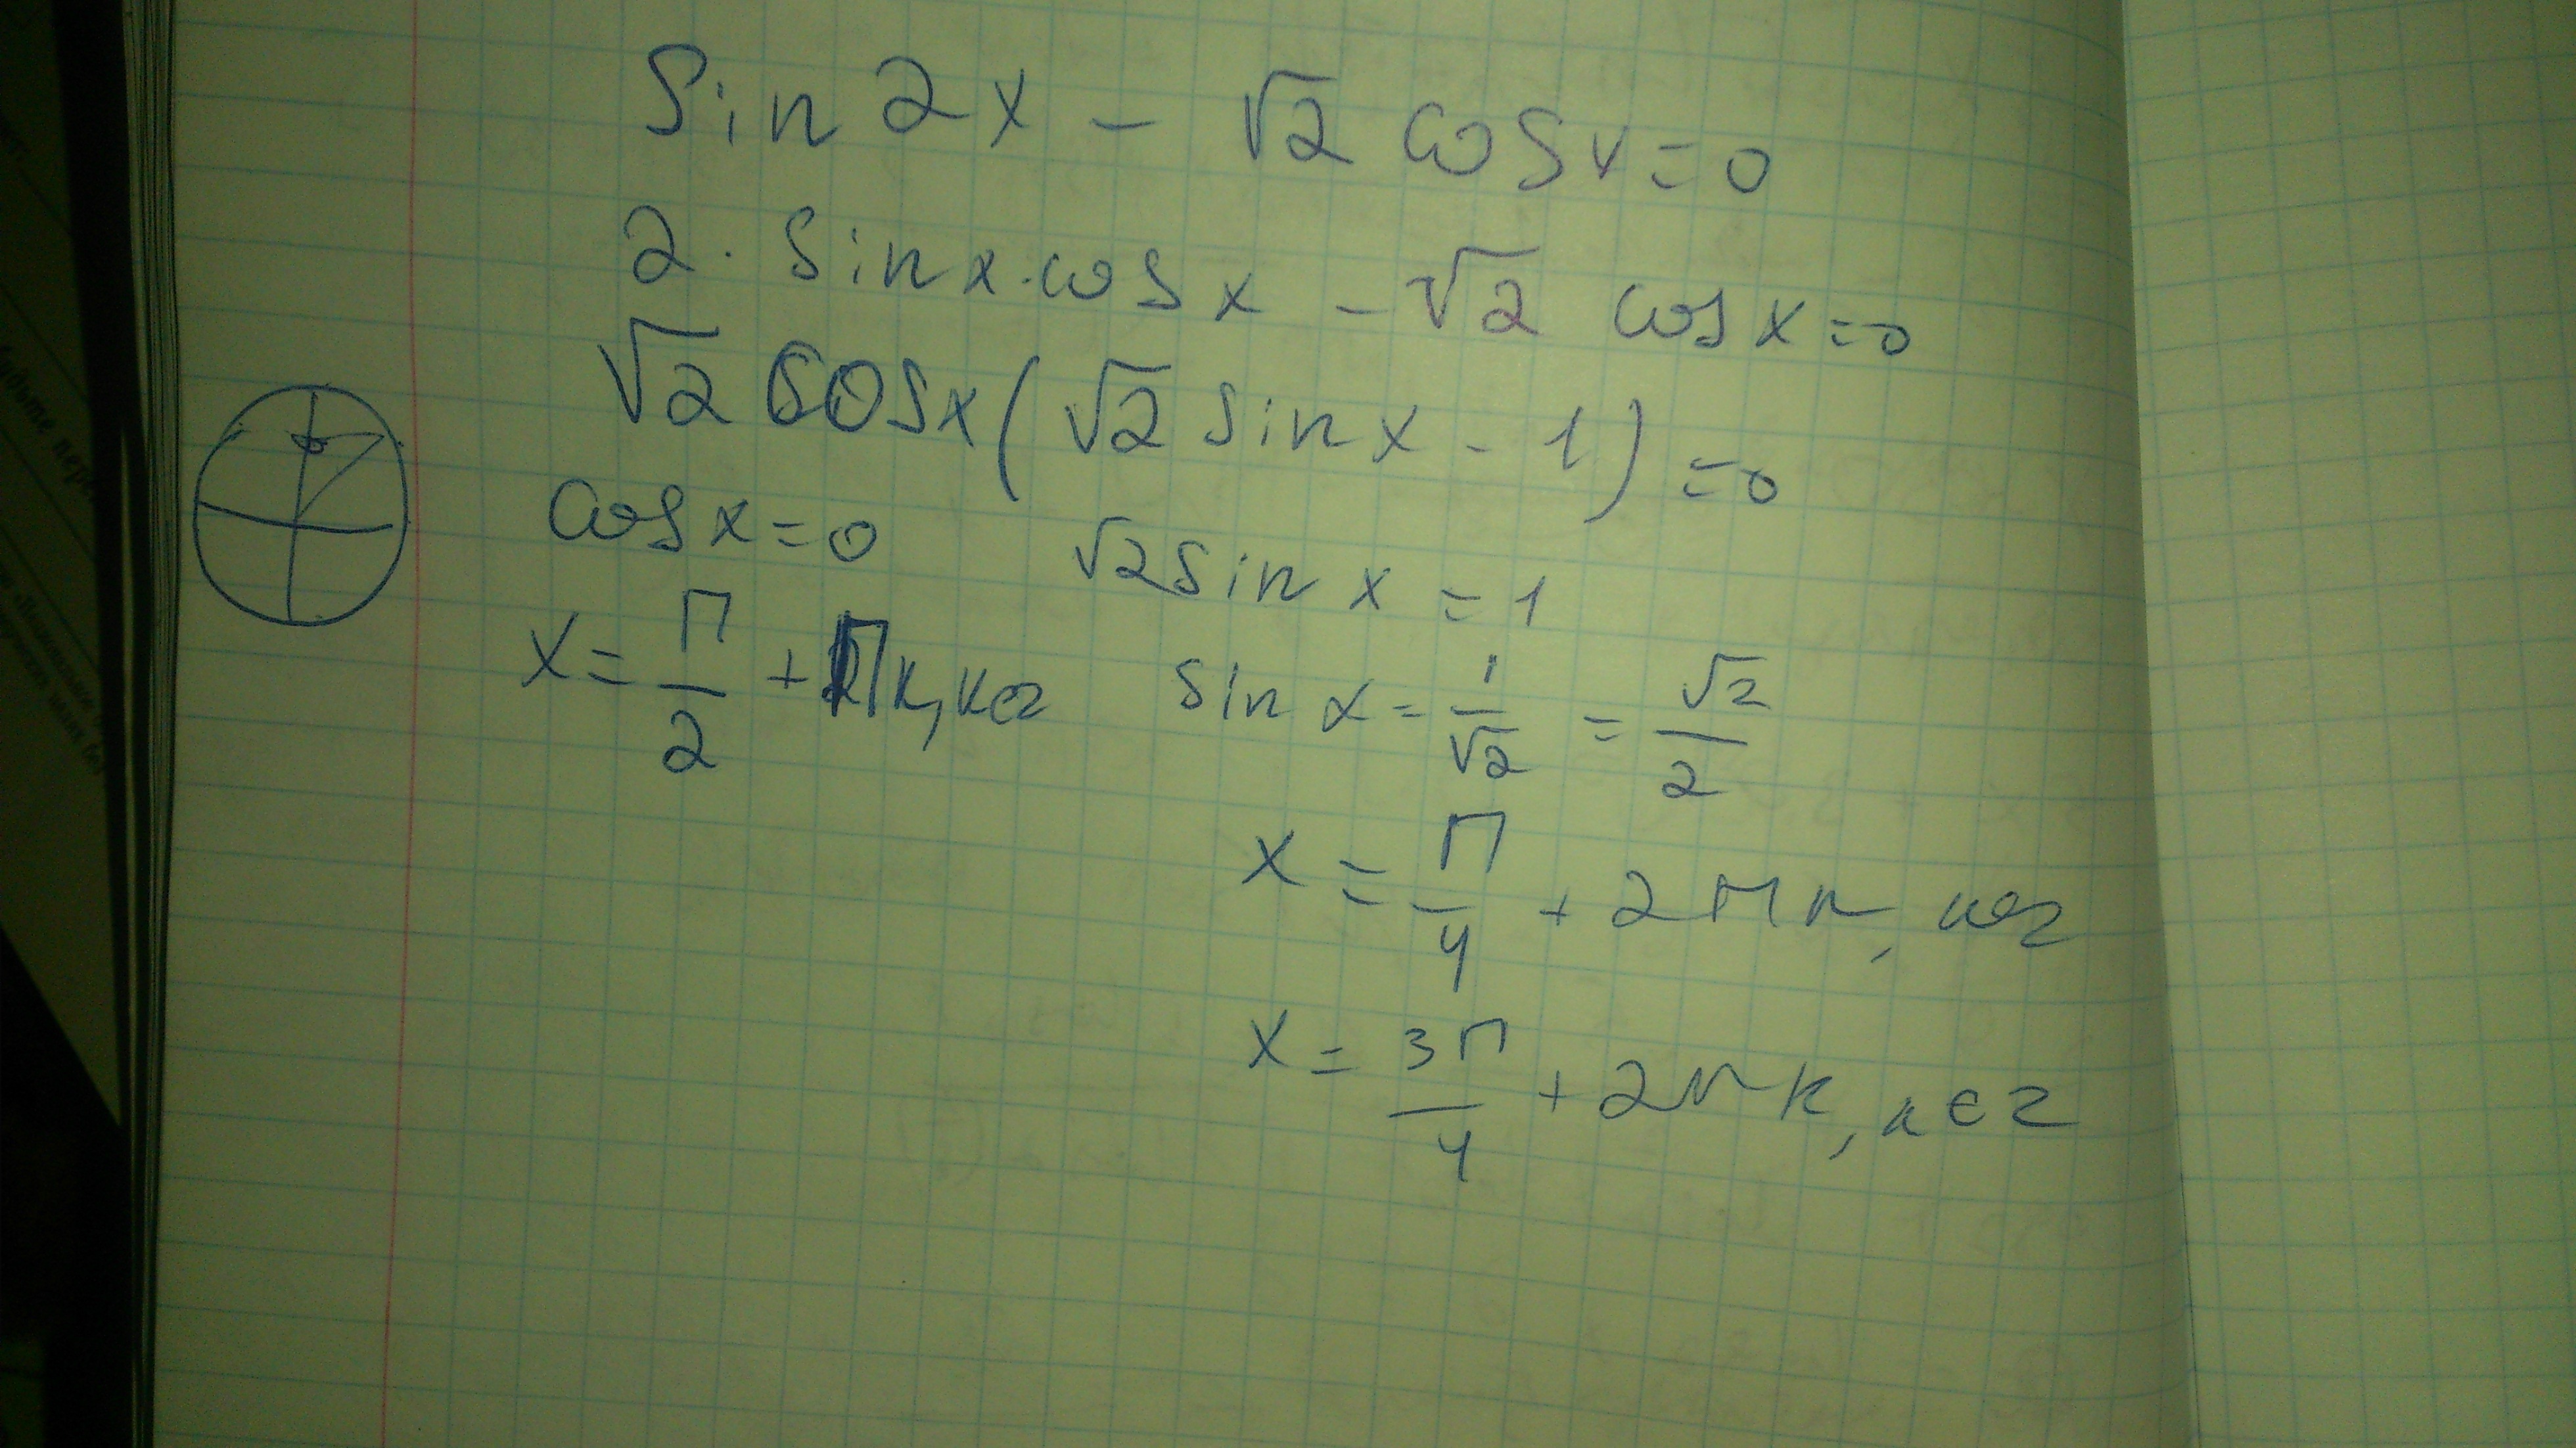 Sin 2x - √2 cos x = 0
2 · Sin x · cos x - √2 cos x = 0
√2 cos x (√2 sin x - 1) = 0
cos x = 0 √2 sin x = 1
x = П/2 + Пk, k∈z sin x = 1/√2 = √2/2
x = П/4 + 2Пk, k∈z
x = 3П/4 + 2Пk, k∈z